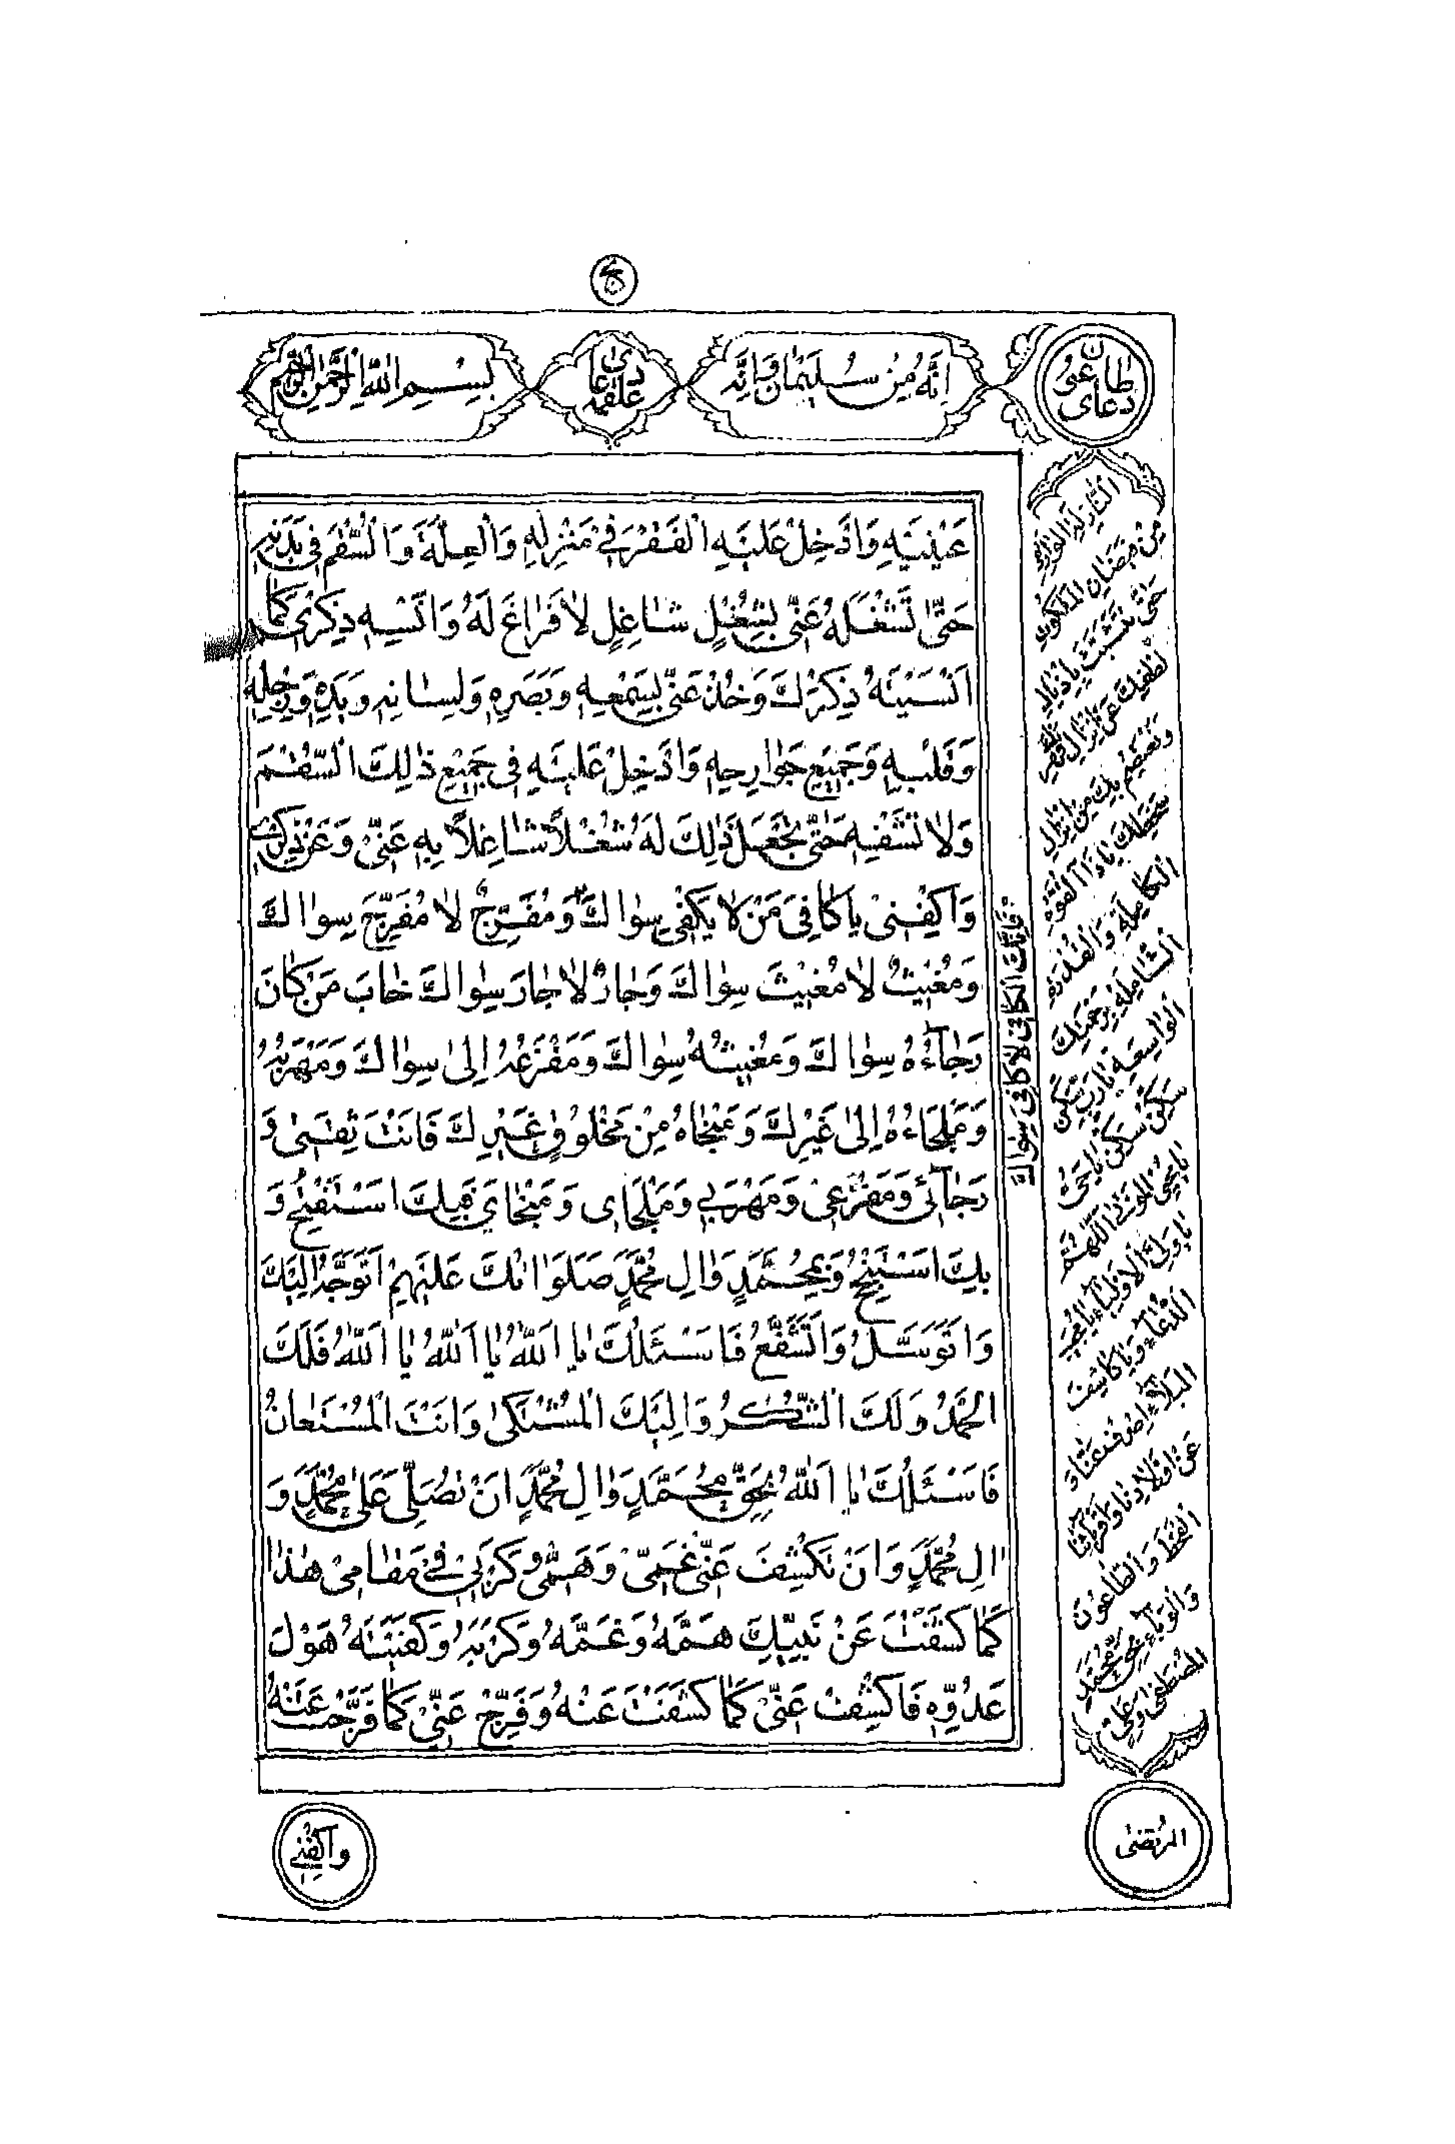 دعای طاعون
اِنَّهُ مِنْ سُلَيْمٰانَ وَاِنَّهُ
دعای علقمه
بِسْمِ اللّٰهِ الرَّحْمٰنِ الرَّحيمِ
عَيْنَيْهِ وَاَدْخِلْ عَلَيْهِ الْفَقْرَ فِى مَنْزِلِهِ وَالْعِلَّةَ وَالسُّقْمَ فى بَدَنِهِ
حَتّٰى تَشْغَلَهُ عَنّى بِشُغْلٍ شٰاغِلٍ لٰا فَرٰاغَ لَهُ وَاَنْسِهِ ذِكْرى كَمٰا
اَنْسَيْتَهُ ذِكْرَكَ وَخُذْ عَنّى بِسَمْعِهِ وَبَصَرِهِ وَلِسٰانِهِ وَيَدِهِ وَرِجْلِهِ
وَقَلْبِهِ وَجَميعِ جَوٰارِحِهِ وَاَدْخِلْ عَلَيْهِ فى جَميعِ ذٰلِكَ السُّقْمَ
وَلٰا تَشْفِهِ حَتّٰى تَجْعَلَ ذٰلِكَ لَهُ شُغْلاً شٰاغِلاً بِهِ عَنّى وَعَنْ ذِكْرى
وَاكْفِنى يٰا كٰافِىَ مَنْ لٰا يَكْفى سِوٰاكَ وَمُفَرِّجٌ لٰا مُفَرِّجَ سِوٰاكَ
فَاِنَّكَ الْكٰافى لٰا كٰافِىَ سِوٰاكَ
وَمُغيثٌ لٰا مُغيثَ سِوٰاكَ وَجٰارٌ لٰا جٰارَ سِوٰاكَ خٰابَ مَنْ كٰانَ
رَجٰاءُهُ سِوٰاكَ وَمُغيثُهُ سِوٰاكَ وَمَفْزَعُهُ اِلىٰ سِوٰاكَ وَمَهْرَبُهُ
وَمَلْجَاءُهُ اِلىٰ غَيْرِكَ وَمَنْجٰاهُ مِنْ مَخْلُوقٍ غَيْرِكَ فَاَنْتَ ثِقَتى وَ
رَجٰائى وَمَفْزَعى وَمَهْرَبى وَمَلْجَاى وَمَنْجٰاىَ فَبِكَ اَسْتَفْتِحُ وَ
بِكَ اَسْتَنْجِحُ وَبِمُحَمَّدٍ وَاٰلِ مُحَمَّدٍ صَلَوٰاتُكَ عَلَيْهِمْ اَتَوَجَّهُ اِلَيْكَ
وَاَتَوَسَّلُ وَاَتَشَفَّعُ فَاَسْئَلُكَ يٰا اَللّٰهُ يٰا اَللّٰهُ يٰا اَللّٰهُ فَلَكَ
الْحَمْدُ وَلَكَ الشُّكْرُ وَاِلَيْكَ الْمُشْتَكىٰ وَاَنْتَ الْمُسْتَعٰانُ
فَاَسْئَلُكَ يٰا اَللّٰهُ بِحَقِّ مُحَمَّدٍ وَاٰلِ مُحَمَّدٍ اَنْ تُصَلِّىَ عَلىٰ مُحَمَّدٍ وَ
اٰلِ مُحَمَّدٍ وَاَنْ تَكْشِفَ عَنّى غَمّى وَهَمّى وَكَرْبى فى مَقٰامى هٰذٰا
كَمٰا كَشَفْتَ عَنْ نَبِيِّكَ هَمَّهُ وَغَمَّهُ وَكَرْبَهُ وَكَفَيْتَهُ هَوْلَ
عَدُوِّهِ فَاكْشِفْ عَنّى كَمٰا كَشَفْتَ عَنْهُ وَفَرِّجْ عَنّى كَمٰا فَرَّجْتَ عَنْهُ
وَاكْفِنى
حَتّٰى نَتَشَبَّثَ بِاَذْيٰالِ
لُطْفِكَ عَنْ اِنْزٰالِ قَهْرِكَ
وَنَعْتَصِمُ بِكَ مِنْ اِنْزٰالِ
سَخَطِكَ يٰا ذَا الْقُوَّةِ
الْكٰامِلَةِ وَالْقُدْرَةِ
الشّٰامِلَةِ بِرَحْمَتِكَ
الْوٰاسِعَةِ
يٰا مُحْيِىَ الْمَوْتىٰ اَللّٰهُمَّ
يٰا وَلِىَّ الْاَوْلِيٰاءِ يٰا مُجيبَ
الدُّعٰاءِ وَيٰا كٰاشِفَ
الْبَلٰاءِ اِصْرِفْ عَنّٰا وَ
عَنْ اَوْلٰادِنٰا
الْقَحْطَ وَالطّٰاعُونَ
وَالْوَبٰاءَ بِحَقِّ مُحَمَّدٍ
الْمُصْطَفىٰ وَعَلِىٍّ
الْمُرْتَضىٰ